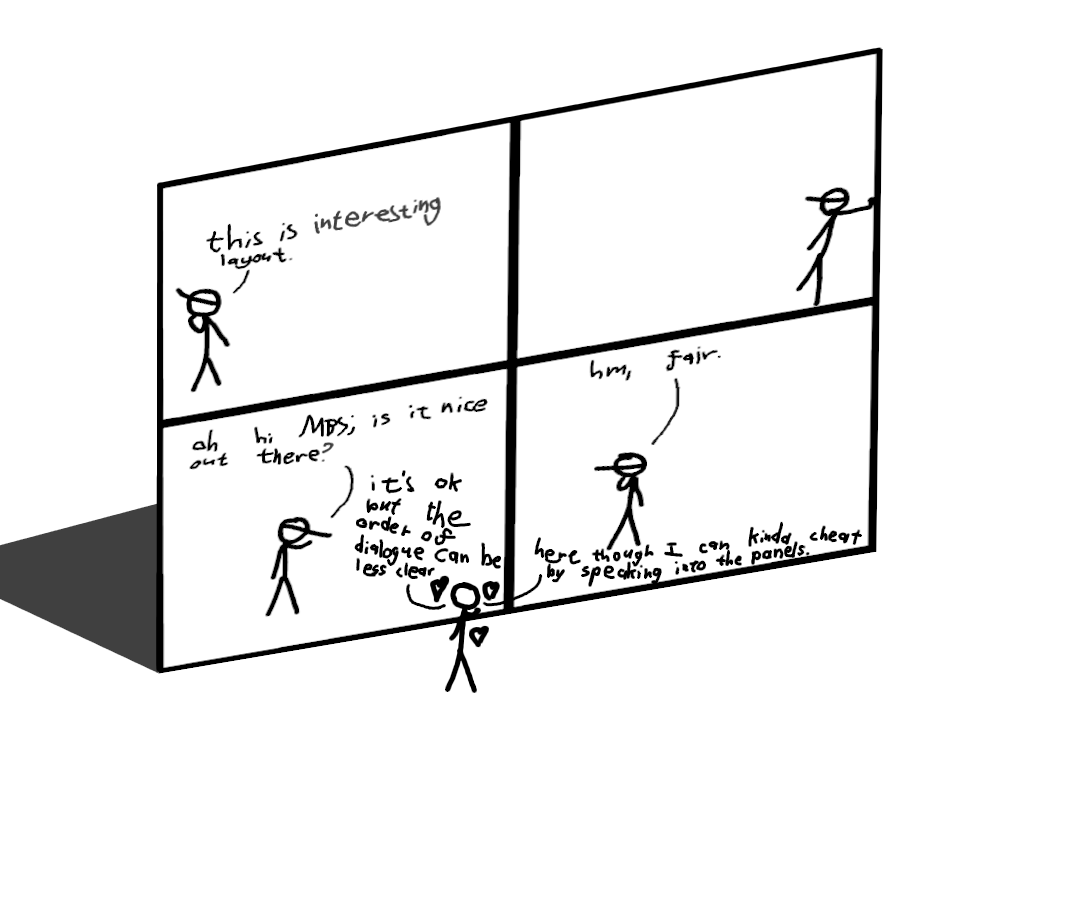 this is interesting
layout.
oh hi MBS; is it nice
out there?
it's ok
but the
order of
dialogue can be
less clear
hm, fair.
here though I can kinda cheat
by speaking into the panels.